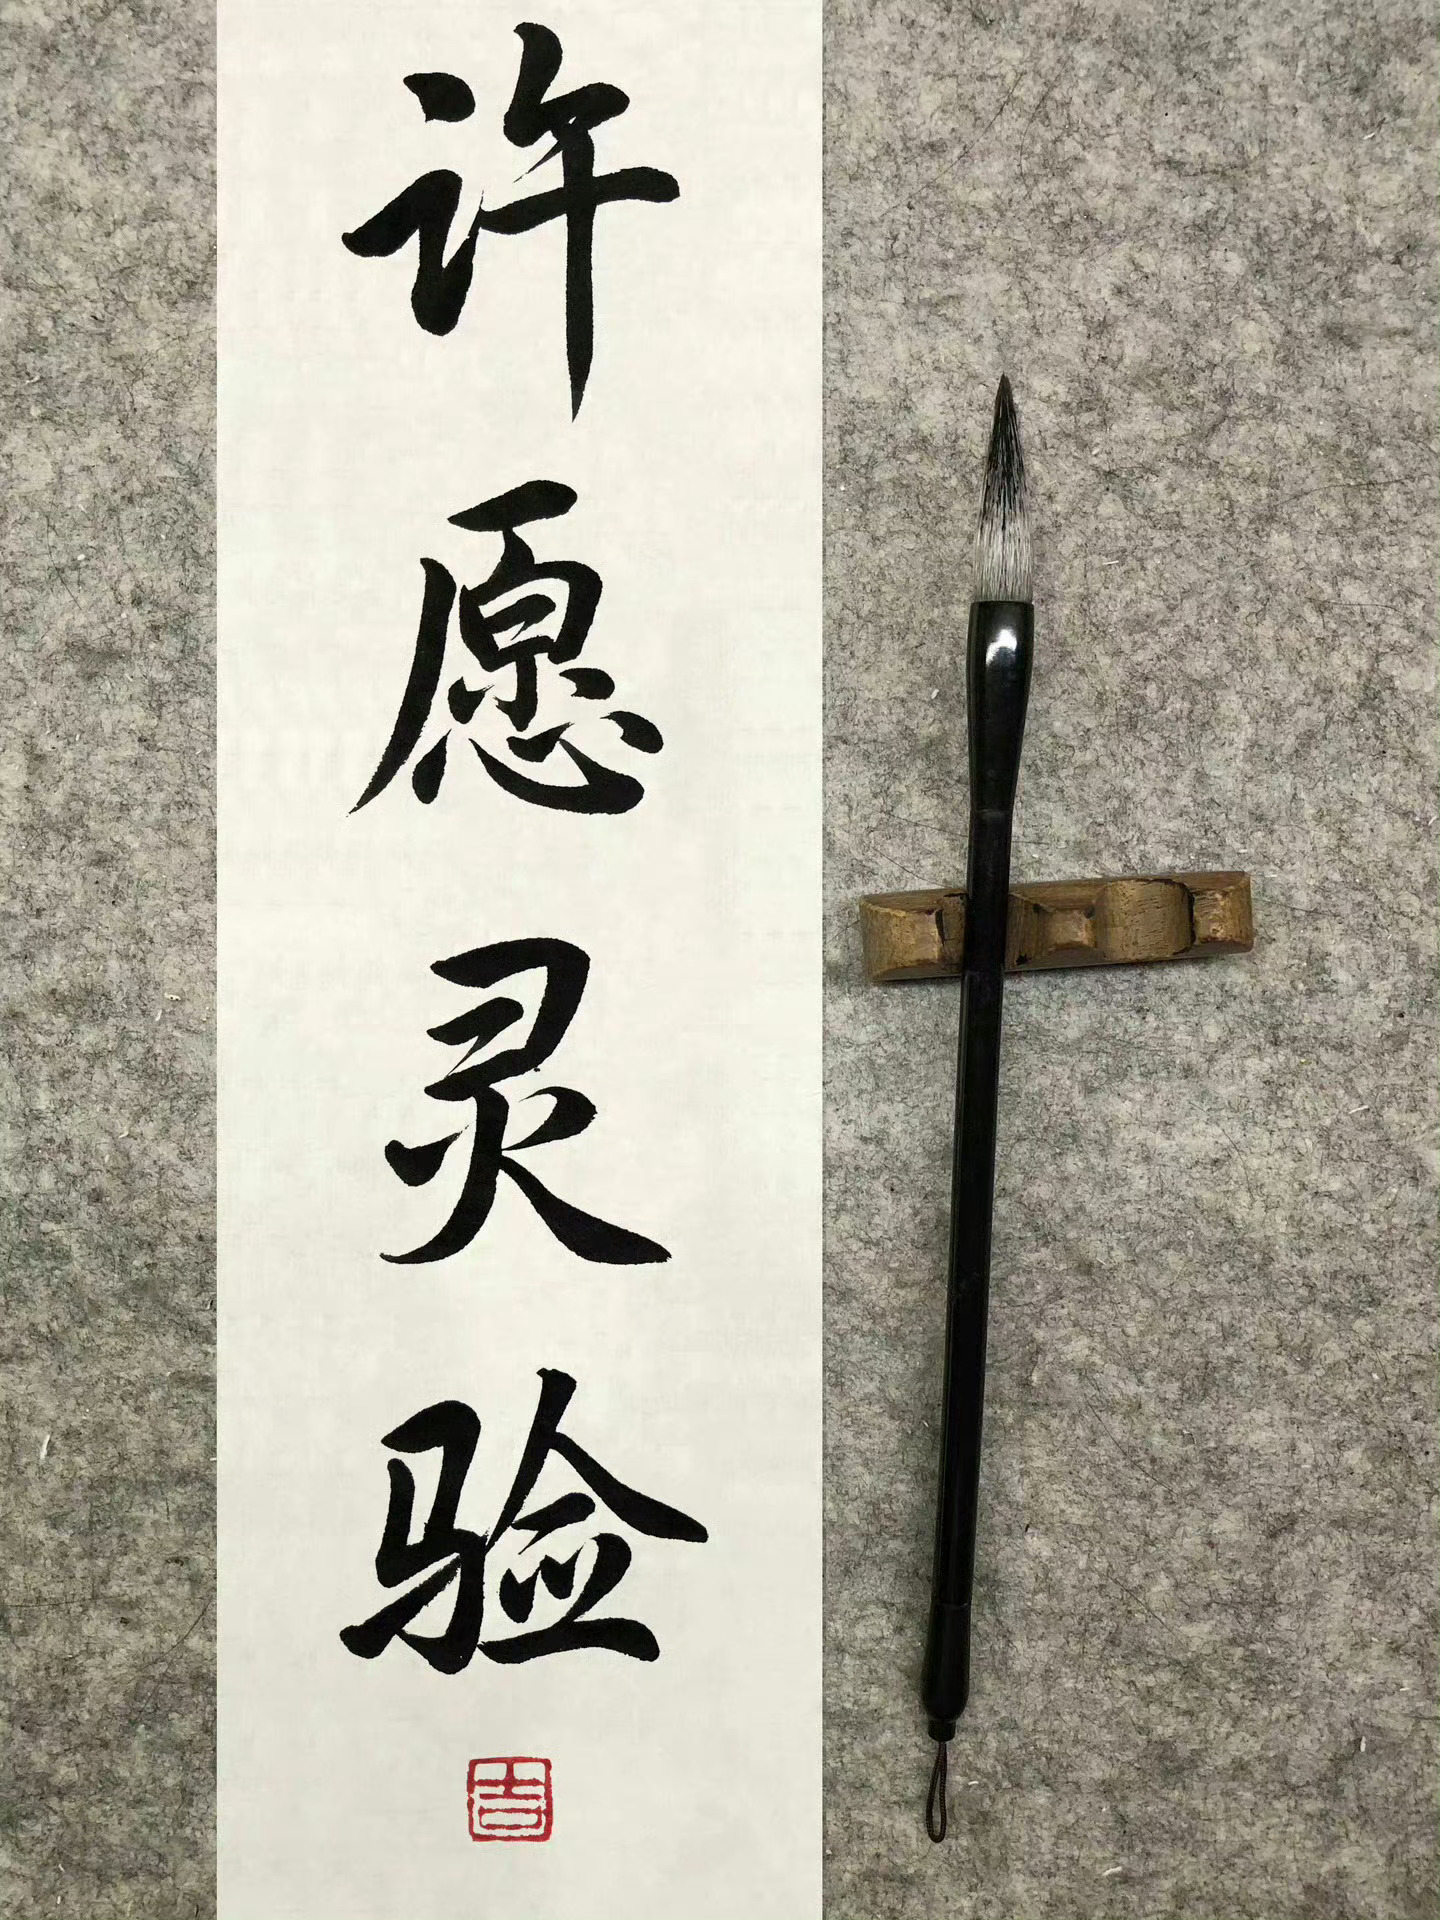 许愿灵验
吉